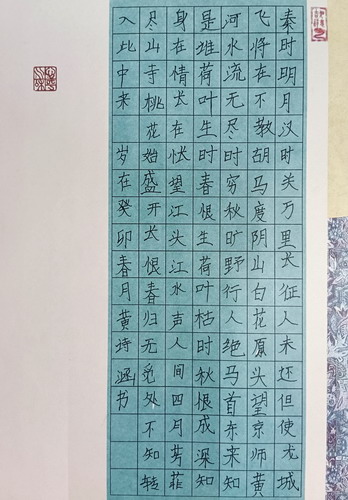 秦时明月汉时关万里长征人未还但使龙城
飞将在不教胡马度阴山白花原头望京师黄
河水流无尽时穷秋旷野行人绝马首东来知
是谁荷叶生时春恨生荷叶枯时秋恨成深知
身在情长在怅望江头江水声人间四月芳菲
尽山寺桃花始盛开长恨春归无觅处不知转
入此中来 岁在癸卯春月黄诗涵书